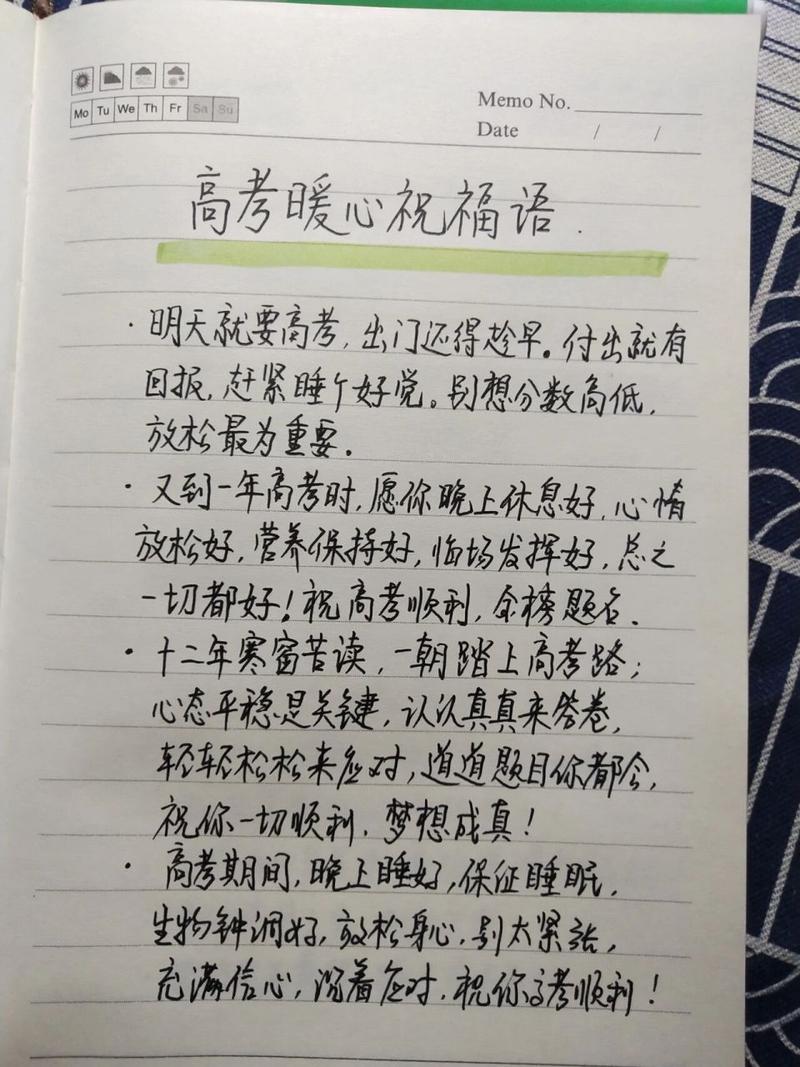 Mo Tu We Th Fr Sa Su
Memo No.
Date / /
高考暖心祝福语.
· 明天就要高考,出门还得趁早。付出就有
回报,赶紧睡个好觉。别想分数高低,
放松最为重要。
· 又到一年高考时,愿你晚上休息好,心情
放松好,营养保持好,临场发挥好,总之
一切都好!祝高考顺利,金榜题名.
· 十二年寒窗苦读,一朝踏上高考路;
心态平稳是关键,认认真真来答卷,
轻轻松松来应对,道道题目你都会,
祝你一切顺利,梦想成真!
· 高考期间,晚上睡好,保证睡眠,
生物钟调好,放松身心,别太紧张,
充满信心,沉着应对,祝你高考顺利!